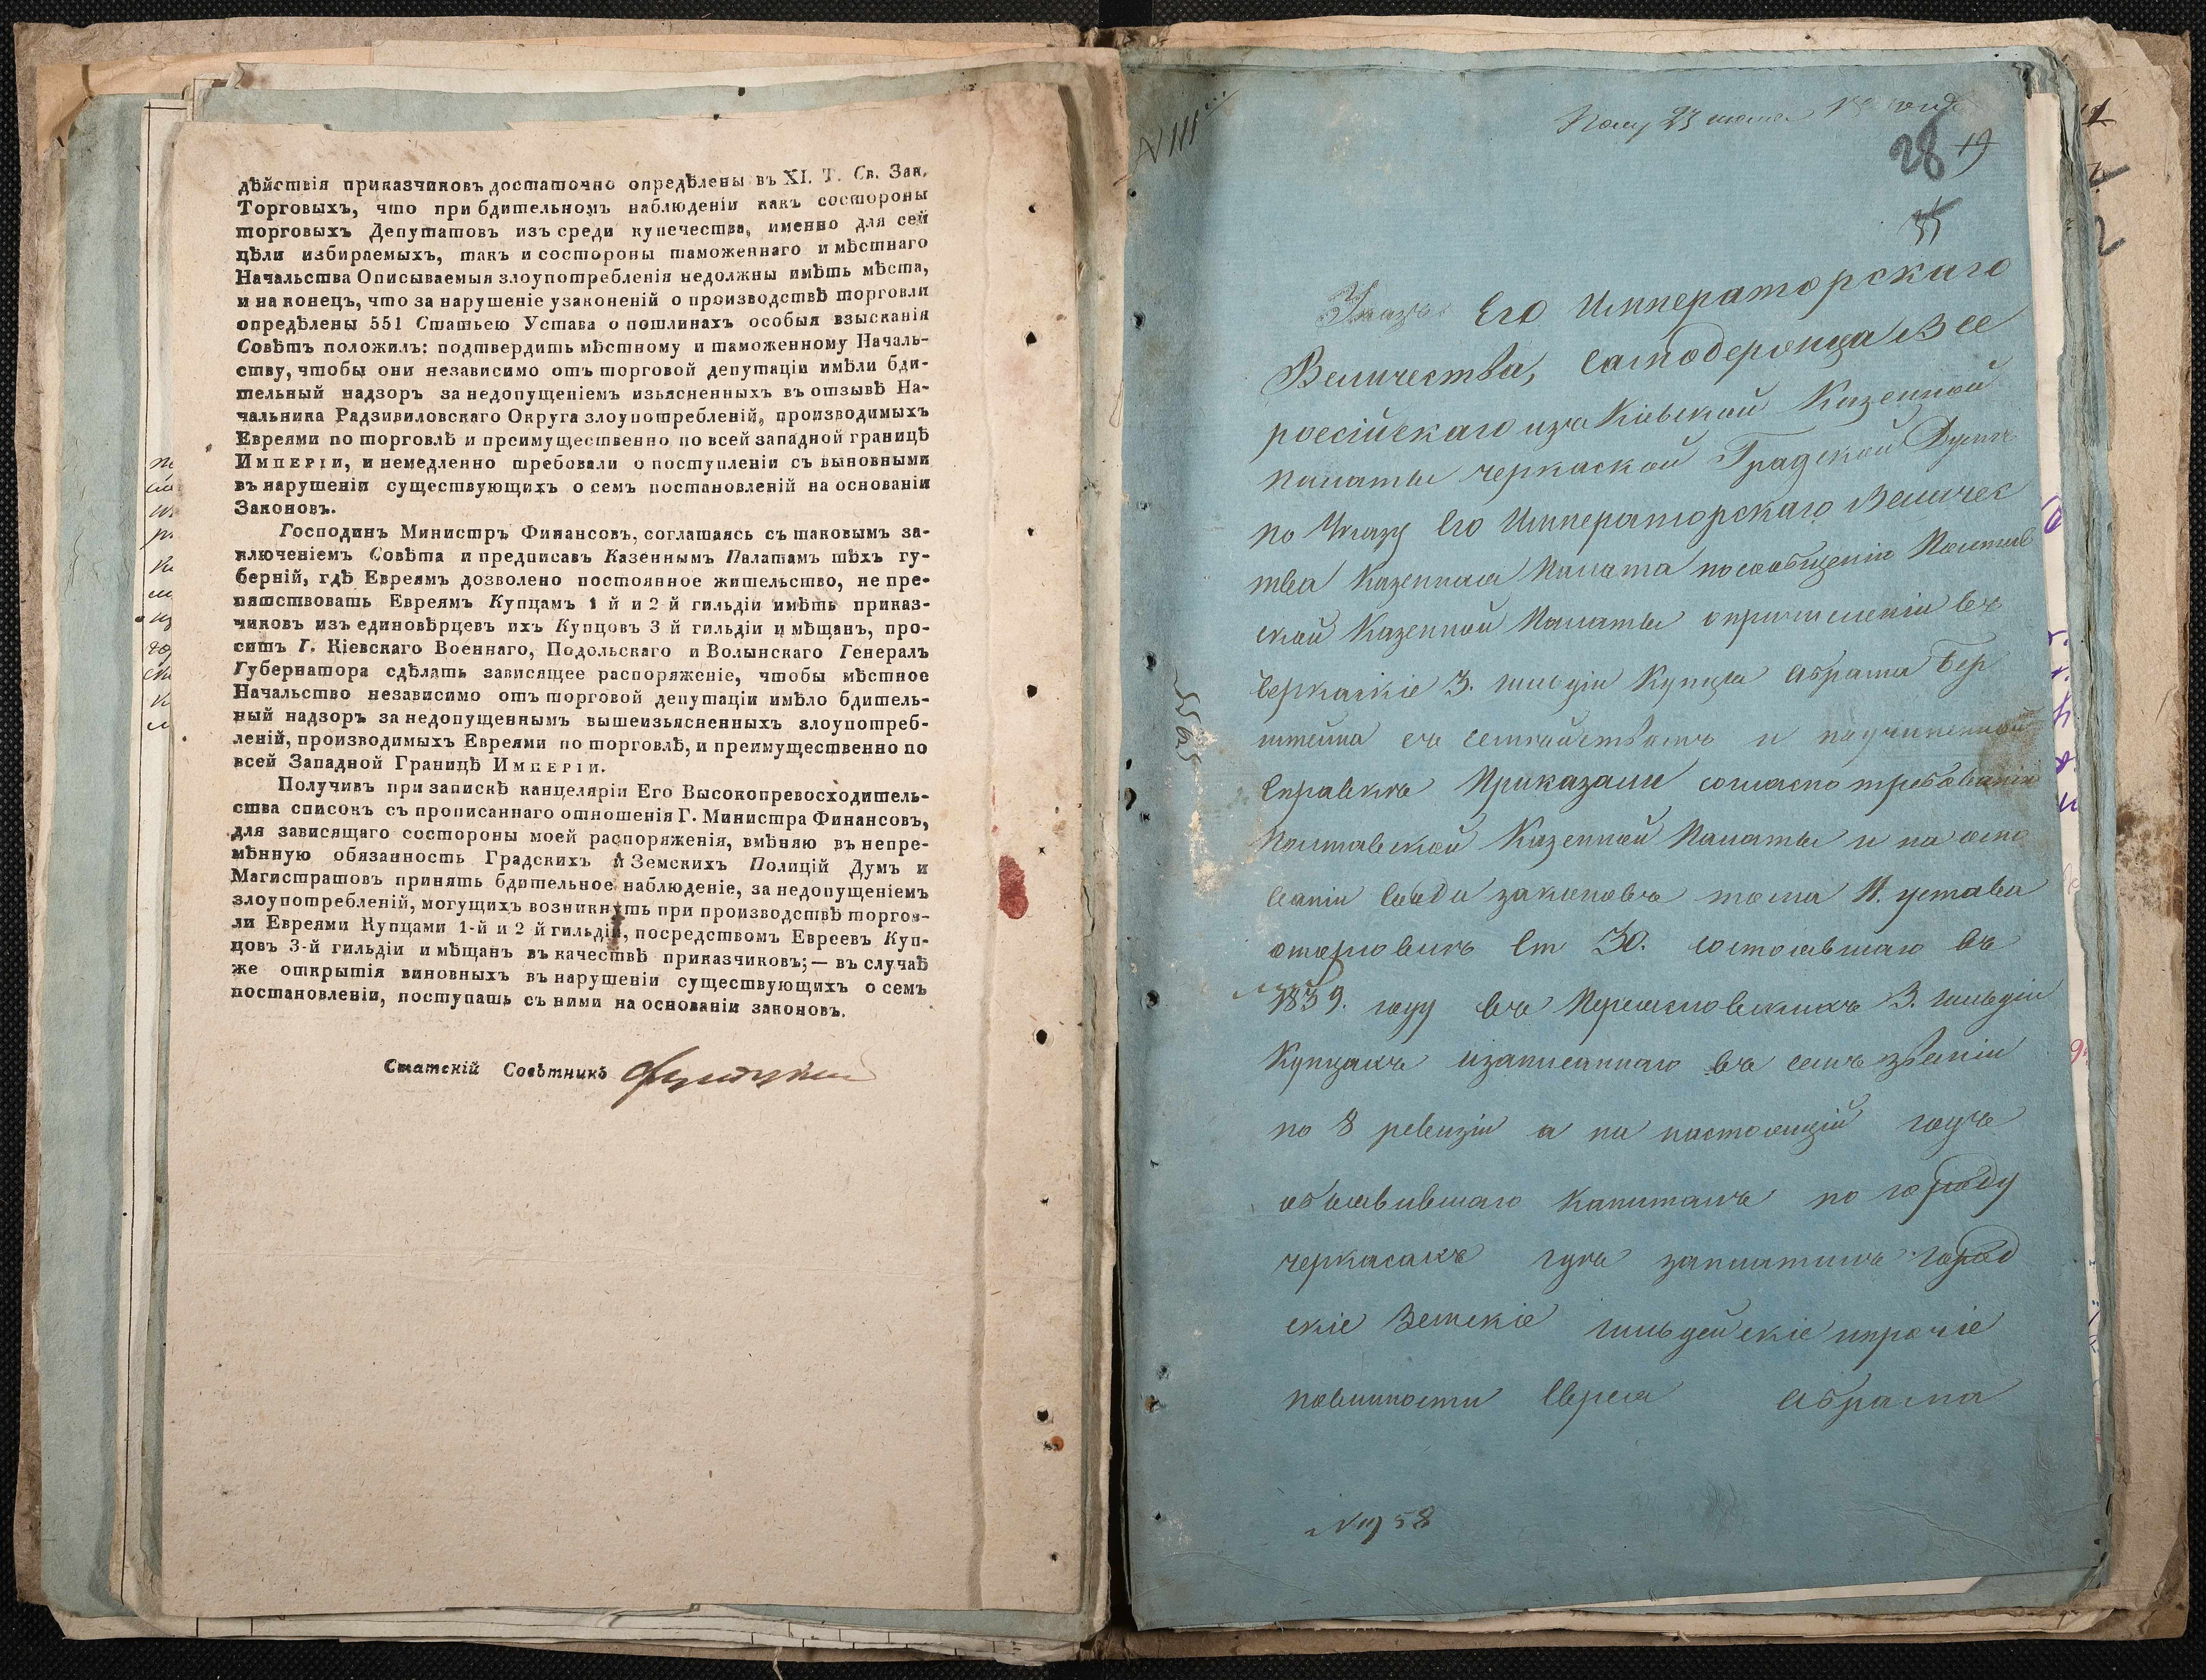 дѣйствія приказчиковъ достаточно опредѣлены въ XI. Т. Св. Зак.
Торговыхъ, что при бдительномъ наблюденіи какъ состороны
торговыхъ Депутатовъ изъ среди купечества, именно для сей
цѣли избираемыхъ, такъ и состороны таможеннаго и мѣстнаго
Начальства Описываемыя злоупотребленія недолжны имѣть мѣста,
и на конецъ, что за нарушеніе узаконеній о производствѣ торговли
опредѣлены 551 Статьею Устава о пошлинахъ особыя взысканія
Совѣтъ положилъ: подтвердить мѣстному и таможенному Началь-
ству, чтобы они независимо отъ торговой депутаціи имѣли бди-
тельный надзоръ за недопущеніемъ изъясненныхъ въ отзывѣ На-
чальника Радзивиловскаго Округа злоупотребленій, производимыхъ
Евреями по торговлѣ и преимущественно по всей западной границѣ
Имперіи, и немедленно требовали о поступленіи съ выновными
въ нарушеніи существующихъ о семъ постановленій на основаніи
Законовъ.
Господинъ Министръ Финансовъ, соглашаясь съ таковымъ за-
ключеніемъ Совѣта и предписавъ Казеннымъ Палатамъ тѣхъ гу-
берній, гдѣ Евреямъ дозволено постоянное жительство, не пре-
пятствовать Евреямъ Купцамъ 1 й и 2 й гильдіи имѣть приказ-
чиковъ изъ единовѣрцевъ ихъ Купцовъ 3 й гильдіи и мѣщанъ, про-
ситъ Г. Кіевскаго Военнаго, Подольскаго и Волынскаго Генералъ
Губернатора сдѣлать зависящее распоряженіе, чтобы мѣстное
Начальство независимо отъ торговой депутаціи имѣло бдитель-
ный надзоръ за недопущеннымъ вышеизъясненныхъ злоупотреб-
леній, производимыхъ Евреями по торговлѣ, и преимущественно по
всей Западной Границѣ Имперіи.
Получивъ при запискѣ канцеляріи Его Высокопревосходитель-
ства списокъ съ прописаннаго отношенія Г. Министра Финансовъ,
для зависящаго состороны моей распоряженія, вмѣняю въ непре-
мѣнную обязанность Градскихъ и Земскихъ Полицій Думъ и
Магистратовъ принять бдительное наблюденіе, за недопущеніемъ
злоупотребленій, могущихъ возникнуть при производствѣ торгов-
ли Евреями Купцами 1-й и 2 й гильдіи, посредствомъ Евреевъ Куп-
цовъ 3-й гильдіи и мѣщанъ въ качествѣ приказчиковъ;— въ случаѣ
же открытія виновныхъ въ нарушеніи существующихъ о семъ
постановленіи, поступать съ ними на основаніи законовъ.
Статскій Совѣтникъ
28 19
Указъ Его Императорскаго
Величества, Самодержца Все
россійскаго изъ Кіевской Казенной
палаты черкаской Градской Думѣ
по Указу Его Императорскаго Величес
тва Казенная Палата по сообщенію Полтав
ской Казенной Палаты о причисленіи въ
Черкаскіе 3. гильдіи Купцы Абрама Бер
штейна съ семействомъ и научиненной
Справкѣ Приказали согласно требованію
Полтавской Казенной Палаты и на осно
ваніи Свода законовъ тома 11. устава
оторговлѣ Ст 30. состоявшаго въ
1839. году въ Переясловскихъ 3. гильдіи
Купцахъ изаписаннаго въ семъ званіи
по 8 ревизіи а на настоящій годъ
объявившаго капиталъ по городу
черкасахъ гдѣ заплатилъ Город
скіе Земскіе гильдейскіе ипрочіе
повинности Еврея Абрама
5565